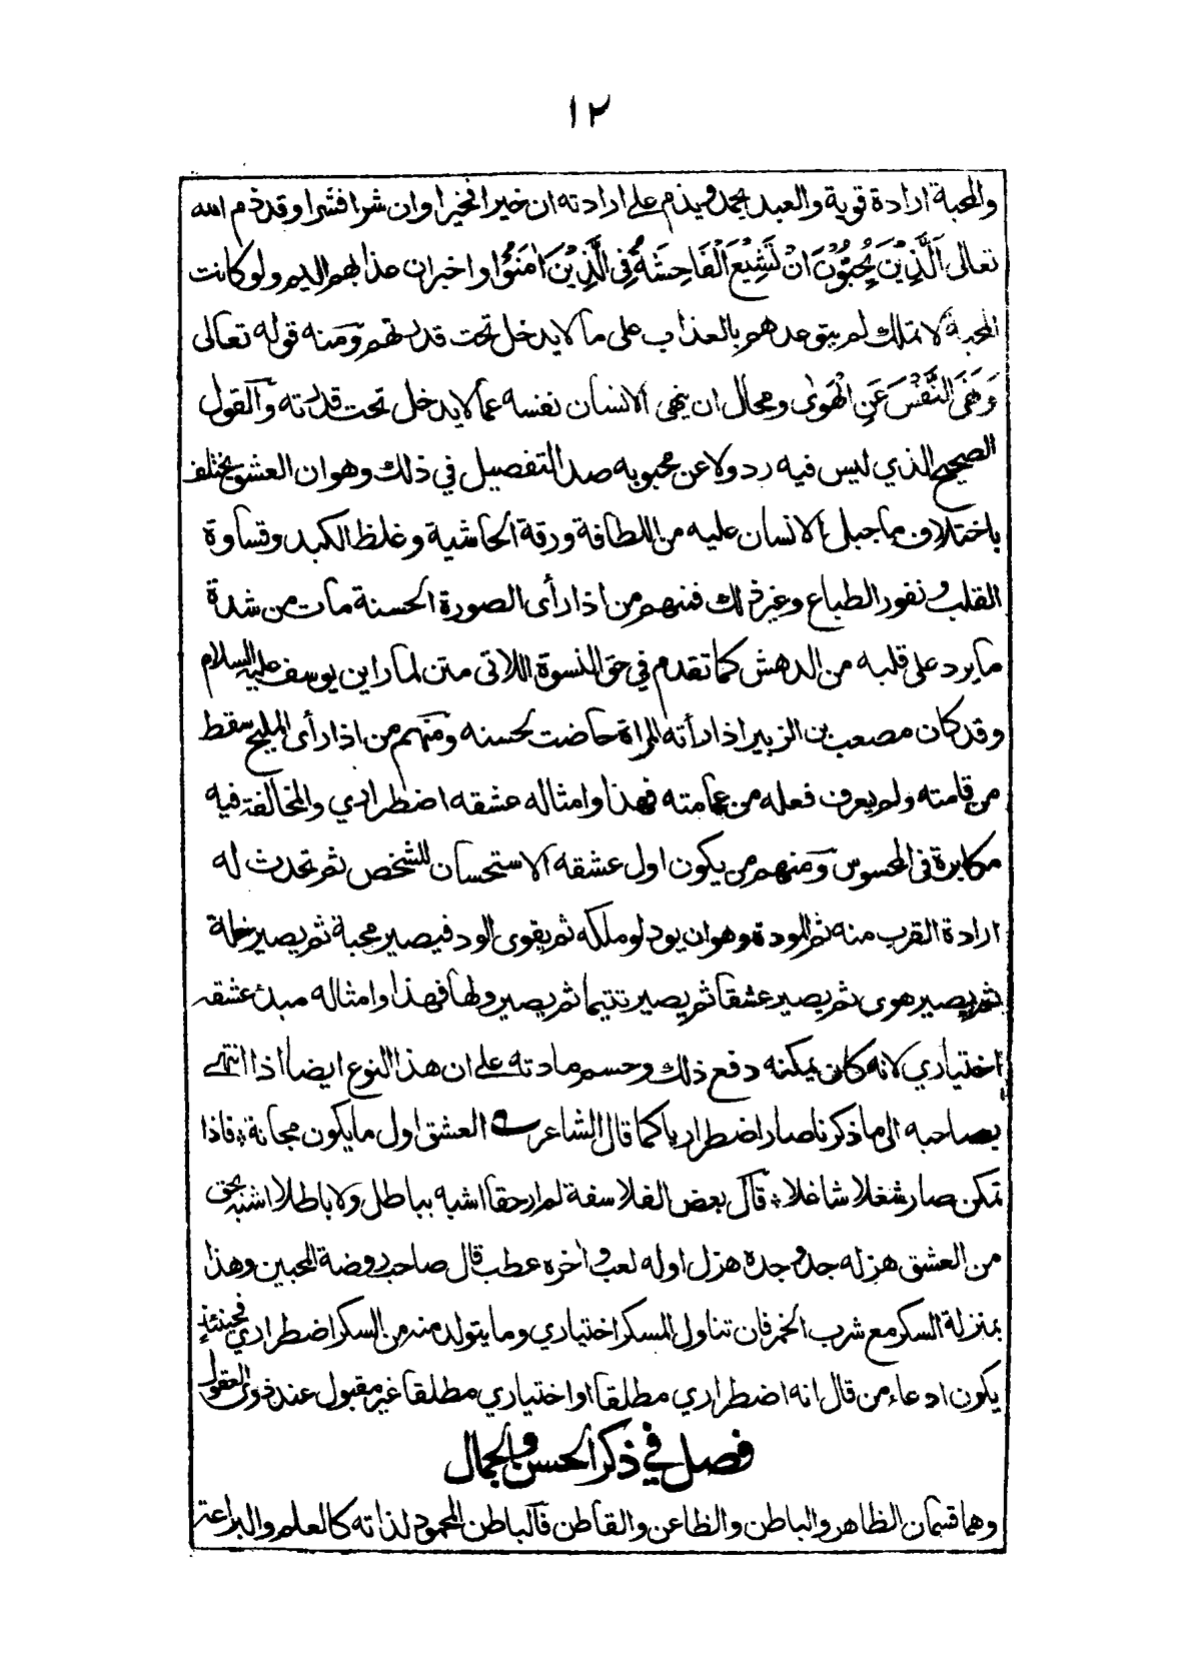 ١٢
والمحبة ارادة قوية والعبد يحمد ويذم على ارادته ان خيرا فخيرا وان شرا فشرا وقد ذم الله
تعالى اَلَّذِيْنَ يُحِبُّوْنَ اَنْ تَشِيْعَ الْفَاحِشَةُ فِى الَّذِيْنَ اٰمَنُوْا واخبر ان عذابهم اليم ولو كانت
المحبة لا تملك لم يتوعدهم بالعذاب على ما لا يدخل تحت قدرتهم ومنه قوله تعالى
وَنَهَى النَّفْسَ عَنِ الْهَوىٰ ومحال ان ينهى الانسان نفسه عما لا يدخل تحت قدرته والقول
الصحيح الذي ليس فيه رد ولا عن محبوبه صد التفصيل في ذلك وهو ان العشق يختلف
باختلاف ما جبل الانسان عليه من اللطافة ورقة الحاشية وغلظ الكبد وقساوة
القلب ونفور الطباع وغير ذلك فمنهم من اذا رأى الصورة الحسنة مات من شدة
ما يرد على قلبه من الدهش كما تقدم في حق النسوة اللاتي متن لما راين يوسف عليه السلام
وقد كان مصعب بن الزبير اذا رأته المراة حاضت لحسنه ومنهم من اذا رأى المليح سقط
من قامته ولم يعرف فعله من عمامته فهذا وامثاله عشقه اضطراري والمخالفة فيه
مكابرة فى المحسوس ومنهم من يكون اول عشقه الاستحسان للشخص ثم تحدث له
ارادة القرب منه ثم المودة وهو ان يود لو ملكه ثم يقوى الود فيصير محبة ثم يصير خلة
ثم يصير هوى ثم يصير عشقا ثم يصير تتيما ثم يصير ولها فهذا وامثاله مبدء عشقه
اختياري لانه كان يمكنه دفع ذلك وحسم مادته على ان هذا النوع ايضا اذا انتهى
بصاحبه الى ما ذكرنا صار اضطراريا كما قال الشاعر العشق اول ما يكون مجانة * فاذا
تمكن صار شغلا شاغلا * قال بعض الفلاسفة لم ار حقا اشبه بباطل ولا باطلا اشبه بحق
من العشق هزله جد وجده هزل اوله لعب واخره عطب قال صاحب روضة المحبين وهذا
بمنزلة السكر مع شرب الخمر فان تناول المسكر اختياري وما يتولد منه من السكر اضطراري فحينئذ
يكون ادعاء من قال انه اضطراري مطلقا او اختياري مطلقا غير مقبول عند ذوى العقول
فصل في ذكر الحسن والجمال
وهما قسمان الظاهر والباطن والظاعن والقاطن فالباطن المحمود لذاته كالعلم والبراعة